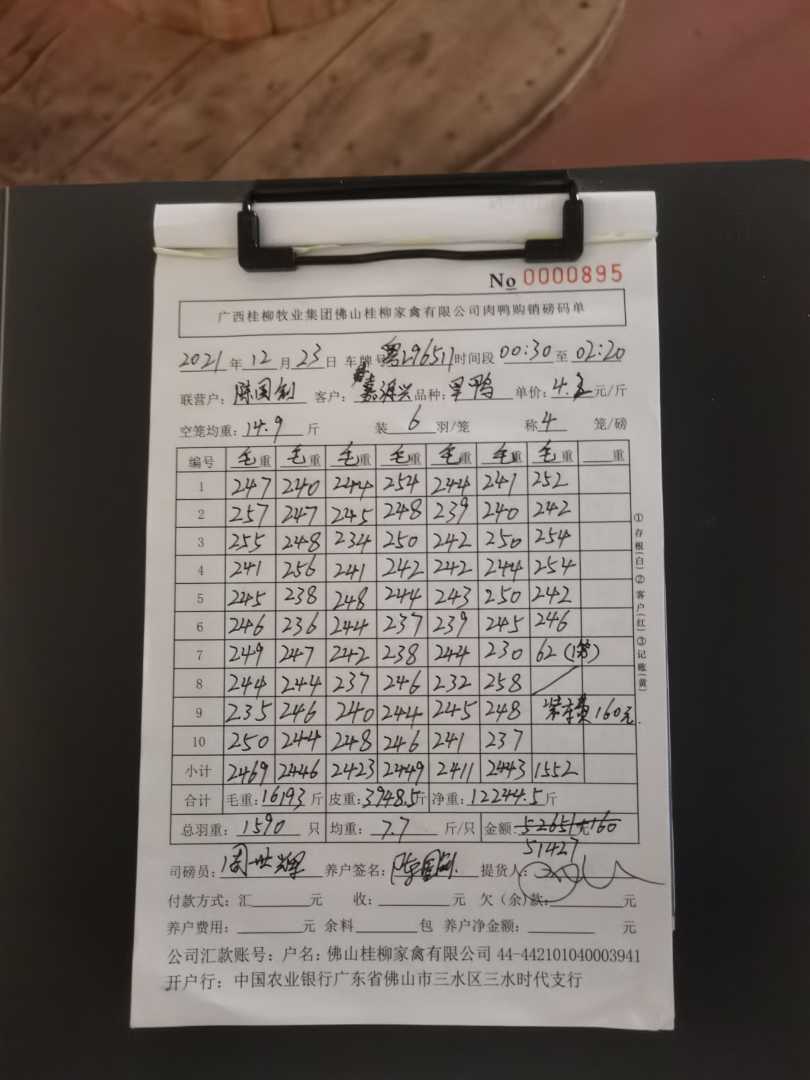 No 0000895
广西桂柳牧业集团佛山桂柳家禽有限公司肉鸭购销磅码单
2021 年 12 月 23 日 车牌号 粤 29651 时间段 00:30 至 02:20
联营户: 陈国剑 客户: 嘉润兴 品种: 旱鸭 单价: 4. 元/斤
空笼均重: 14.9 斤 装 6 羽/笼 称 4 笼/磅
编号 毛重 毛重 毛重 毛重 毛重 毛重 毛重 重
1 247 240 244 254 244 241 252
2 257 247 245 248 239 240 242
3 255 248 234 250 242 250 254
4 241 256 241 242 242 244 254
5 245 238 248 244 243 250 242
6 246 236 244 237 239 245 246
7 249 247 242 238 244 230 62
8 244 244 237 246 232 258
9 235 246 240 244 245 248 装车费 160元
10 250 244 248 246 241 237
小计 2469 2446 2423 2449 2411 2443 1552
合计 毛重: 16193 斤 皮重: 3948.5 斤 净重: 12244.5 斤
总羽重: 1590 只 均重: 7.7 斤/只 金额: 52651 元 160
51427
司磅员: 周世辉 养户签名: 陈国剑 提货人:
付款方式: 汇 元 收: 元 欠(余)款: 元
养户费用: 元 余料 包 养户净金额: 元
公司汇款账号: 户名: 佛山桂柳家禽有限公司 44-442101040003941
开户行: 中国农业银行广东省佛山市三水区三水时代支行
①存根(白)②客户(红)③记账(黄)